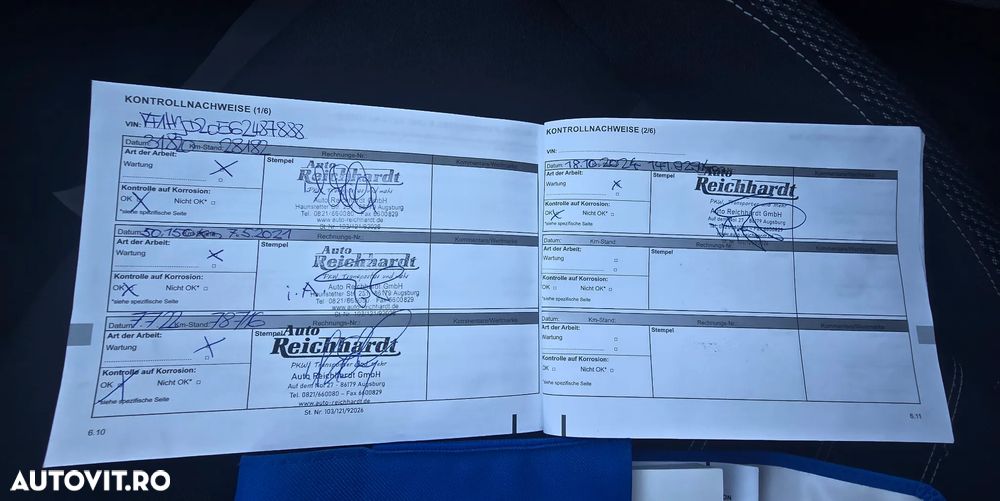 KONTROLLNACHWEISE (1/6)
VIN:
Datum: Km-Stand: 28182 Rechnungs-Nr.: Kommentare/Werkmarke
Art der Arbeit:
Wartung X
Kontrolle auf Korrosion:
OK X Nicht OK*
*siehe spezifische Seite
Stempel
Auto
Reichhardt
PKW, Transporter und mehr
Auto Reichhardt GmbH
Haunstetter Str. Augsburg
Tel. 0821/660080 - Fax 6600829
www.auto-reichardt.de
St. Nr. 103/121/92026
Datum: 50.150 7.5.2021 Rechnungs-Nr.:
Art der Arbeit:
Wartung X
Kontrolle auf Korrosion:
OK X Nicht OK*
*siehe spezifische Seite
Stempel
Auto
Reichhardt
PKW, Transporter und mehr
i.A
Auto Reichhardt GmbH
Haunstetter Str. 86179 Augsburg
Tel. 0821/660080 - Fax 6600829
www.auto-reichardt.de
St. Nr. 103/121/92026
Datum: Km-Stand: 78716 Rechnungs-Nr.:
Art der Arbeit:
Wartung X
Kontrolle auf Korrosion:
OK Nicht OK*
*siehe spezifische Seite
Stempel
Auto
Reichhardt
PKW, Transporter und mehr
Auto Reichhardt GmbH
Auf dem Nol 27 - 86179 Augsburg
Tel. 0821/660080 – Fax 6600829
www.auto-reichardt.de
St. Nr. 103/121/92026
6.10
KONTROLLNACHWEISE (2/6)
VIN:
Datum: 18.10.2024
Art der Arbeit:
Wartung X
Kontrolle auf Korrosion:
OK X Nicht OK*
*siehe spezifische Seite
Stempel
Auto
Reichhardt
PKW, Transporter und mehr
Auto Reichhardt GmbH
Auf dem 86179 Augsburg
Datum: Km-Stand: Rechnungs-Nr.: Kommentare/Werkmarke
Art der Arbeit:
Wartung
Kontrolle auf Korrosion:
OK Nicht OK*
*siehe spezifische Seite
Stempel
Datum: Km-Stand: Rechnungs-Nr.: Kommentare/Werkmarke
Art der Arbeit:
Wartung
Kontrolle auf Korrosion:
OK Nicht OK*
*siehe spezifische Seite
Stempel
6.11
AUTOVIT.RO